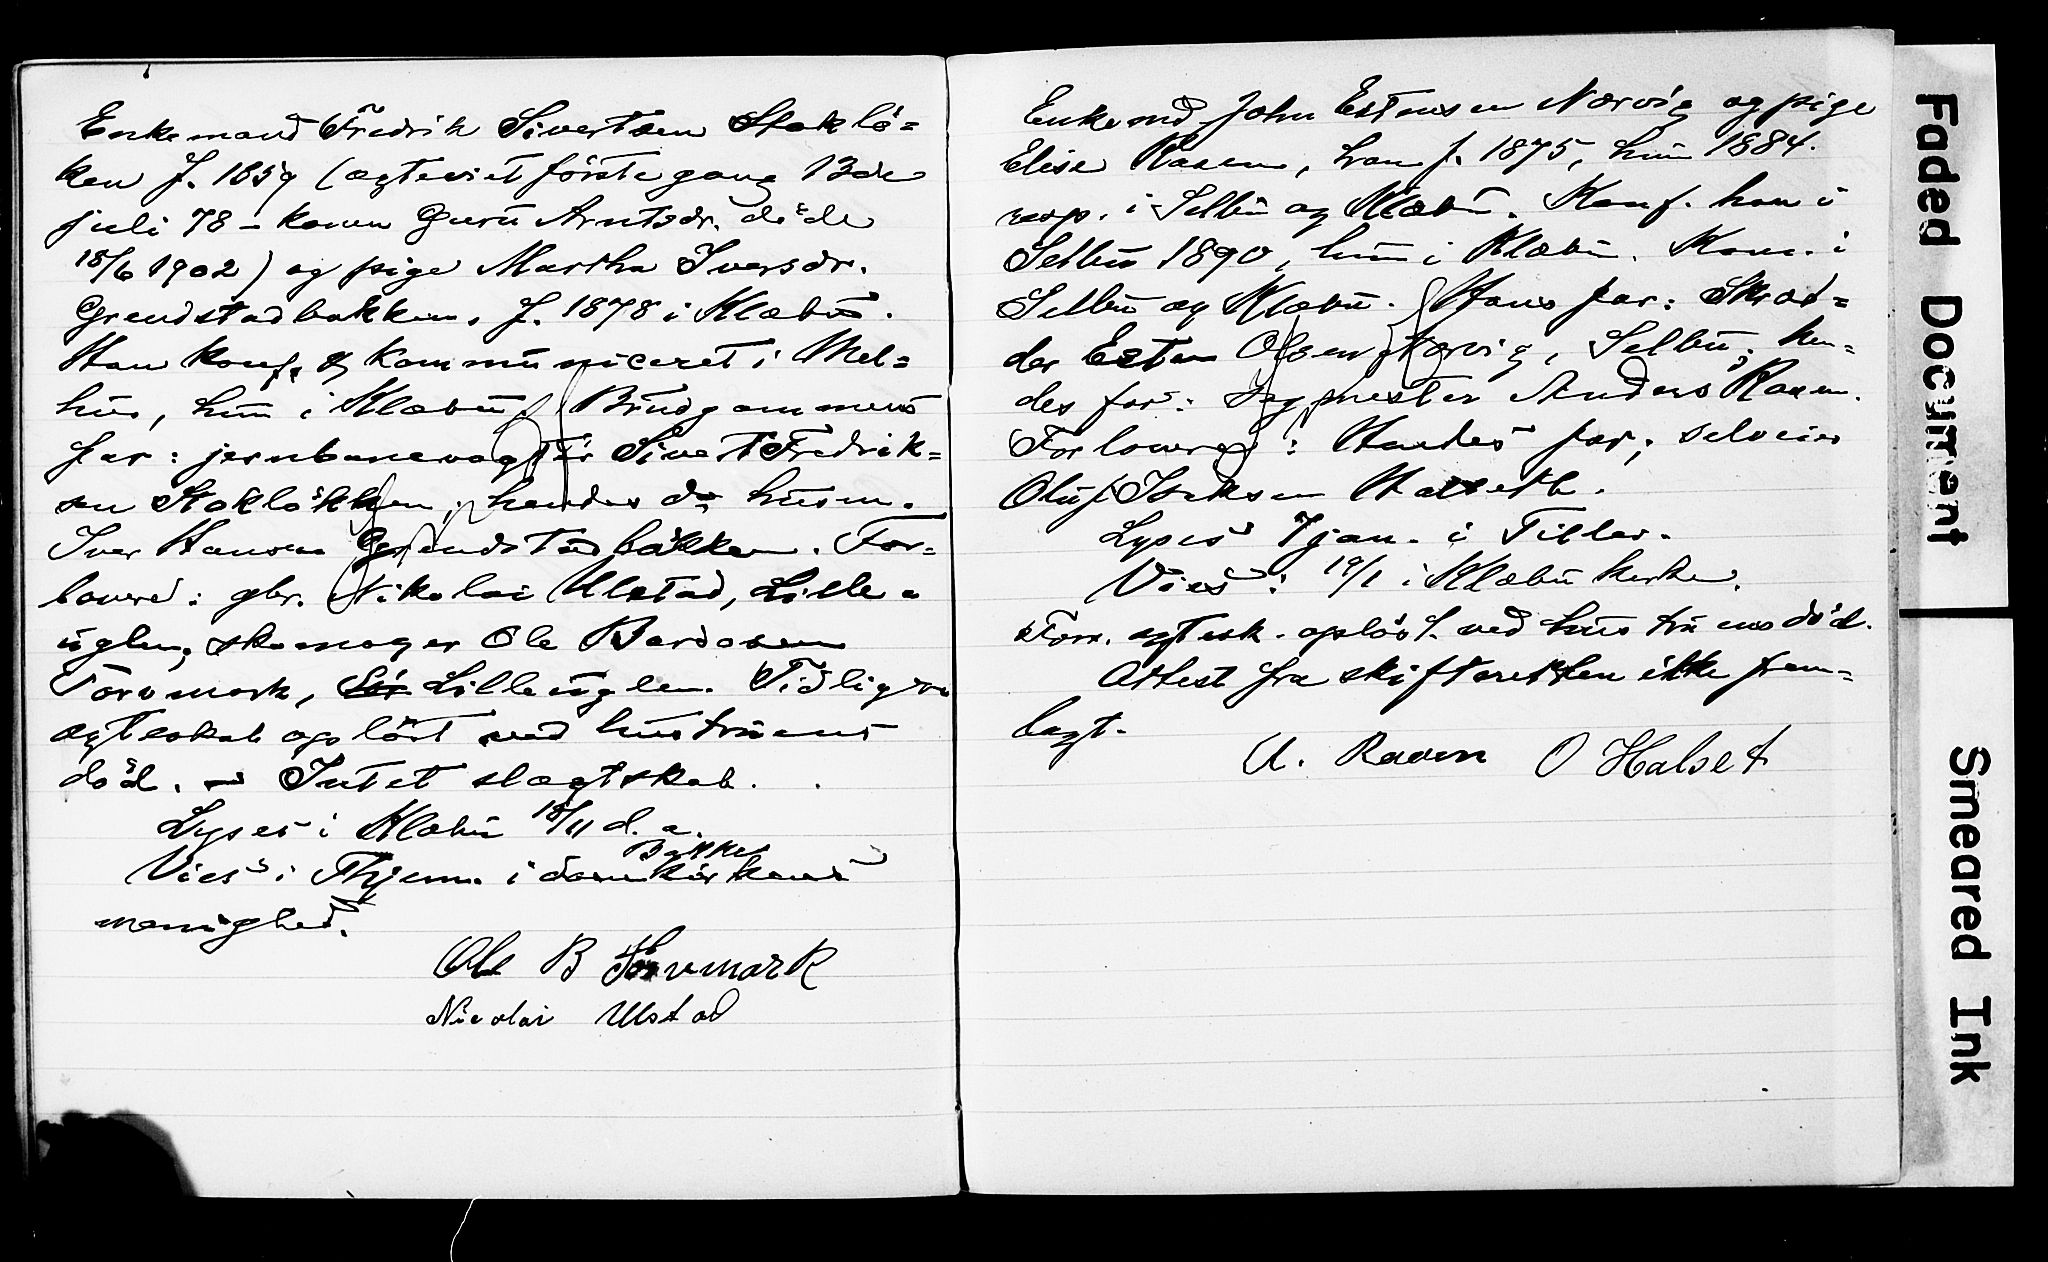 Enkemand Fredrik Sivertsen Stoklö=
ken f. 1859 (ægteviet förste gang 13de
juli 78 – konen Guru Arntsdr. döde
18/6 1902) og pige Martha Iversdr.
Grendstadbakken, f. 1878 i Klæbu.
Han konf. & kommuniceret i Mel=
hus, hun i Klæbu. Brudgommens
far: jernbanevogter Sivert Fredrik=
sen Stoklökken; hendes do husm.
Iver Hansen Grendstadbakken. For=
lovere: gbr. Nikolai Ulstad, Lille=
uglen, skomager Ole Bardosen
Torvmork, Lilleuglen. Tidligere
ægteskab oplöst ved hustruens
död. – Intet slægtskab.
Lyses i Klæbu 18/11 d. a.
Vies i Thjem. i Bakke
domkirkens
menighed.
Ole B Torvmork
Nicolai Ulstad
Enkemd John Estensen Nervig og pige
Elise Raaen, han f. 1875, hun 1884.
resp. i Selbu og Klæbu. Konf. han i
Selbu 1890, hun i Klæbu. Kom. i
Selbu og Klæbu. Hans far: Skræd=
der Esten Olsen Nervig, Selbu; hen=
des far: Sagmester Anders Raaen.
Forlovere: Hendes far; selveier
Oluf Isaksen Halseth.
Lyses 7 jan. i Tiller.
Vies: 19/1 i Klæbu kirke.
Forr. egtesk. oplöst ved hustruens död.
Attest fra skifteretten ikke frem=
lagt.
A. Raaen O Halset
Faded Document
Smeared Ink